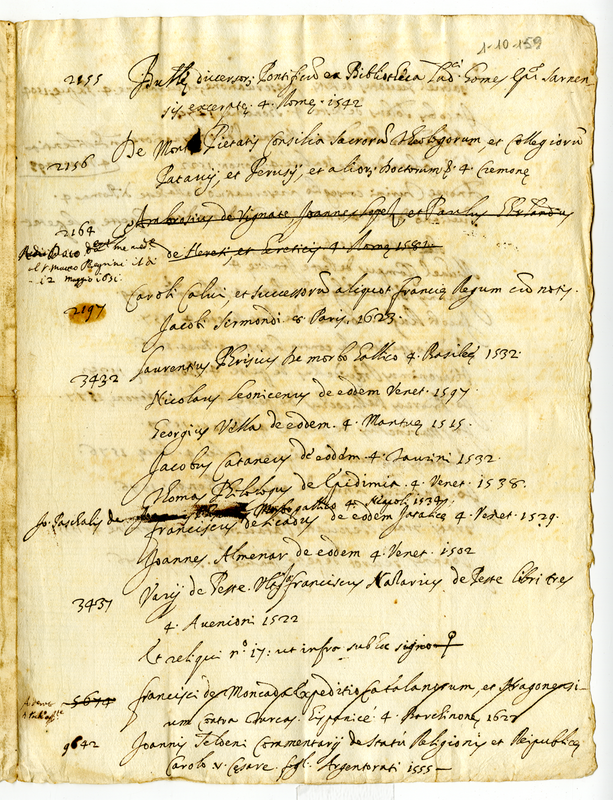 1-10-159
2155 Bullę diversorȝ Pontificũ ex Bibliotheca Lud. Gomes Epi Sarnen-
sis excerptę 4. Romę. 1542
2156 De Monte Pietatis Consilia Sacrorũ Theologorum et Collegiorũ
Patavij, et Perusij, et aliorȝ Doctorum 4. Cremonę
2164 Ambrosius de Vignate Joannes Lopes, et Paulus Ghirlandus
de Hereti et Ereticis 4. Romę 1581.
il P. Mauro
i2 Maggio i63i
2197 Caroli Calvi, et successorũ aliquot Francię Regum cũ notis.
Jacobi Sermondi 8. Paris. 1623.
3432 Laurentius Phrisius de morbo Gallico 4. Basileę 1532.
Nicolaus Leonicenus de eodem Venet. 1597
Georgius Vella de eodem. 4. Mantuę 1515.
Jacobus Cataneus de eodem 4. Taurini 1532.
Thomas Philologus de Epidimia. 4. Venet. 1538.
Jo. Paschalis de Morbo gallico 4. Neapoli 1534.
Franciscus Delicadus de eodem Italicę 4. Venet. 1529.
Joannes Almenar de eodem 4. Venet. 1502
3437 Varij de Peste. Franciscus Nalarius de Peste libri tres
4. Avenioni 1522
Et reliqui nº 17: ut infra sub hoc signo
5674 Francisci de Moncada Expeditio Catalanorum, et Aragonensi-
um contra Turcas. Espanicè 4. Barchinonę 1623
9642 Joannis Sledeni Commentarij de Statu Religionis et Reipublicę
Carolo V. Cęsare. fol. Argentorati 1555